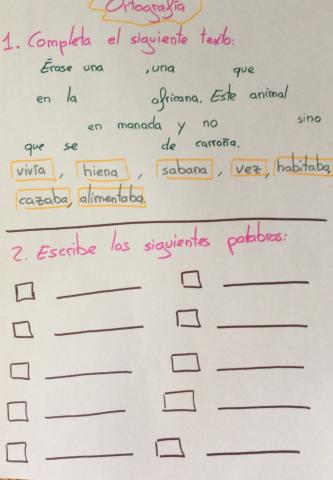 Ortografía
1. Completa el siguiente texto:
Érase una , una que
en la africana. Este animal
en manada y no sino
que se de carroña.
vivía, hiena, sabana, vez, habitaba,
cazaba, alimentaba.
2. Escribe las siguientes palabras: